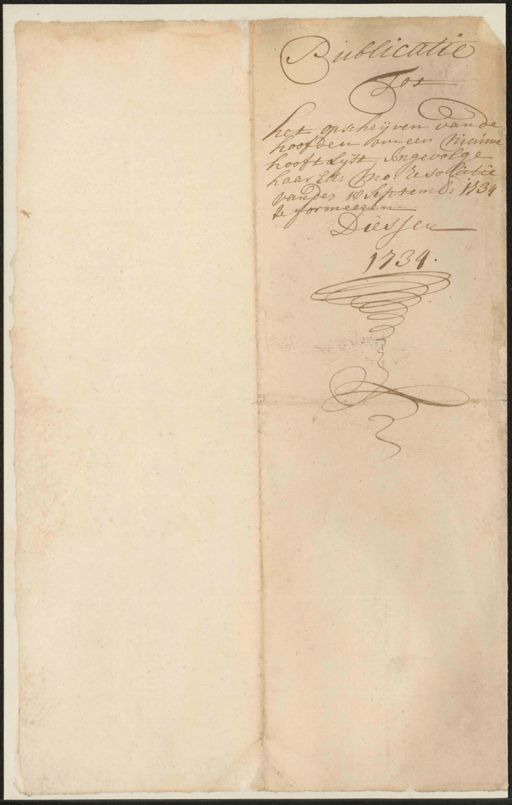 Publicatie
Tot
het opschrijven van de
hoofden om een nieuwe
hooft Lijst Ingevolge
haar Ed: Mo: Resolutie
vande 18 Septemb: 1734
te formeeren
Diessen
1734.